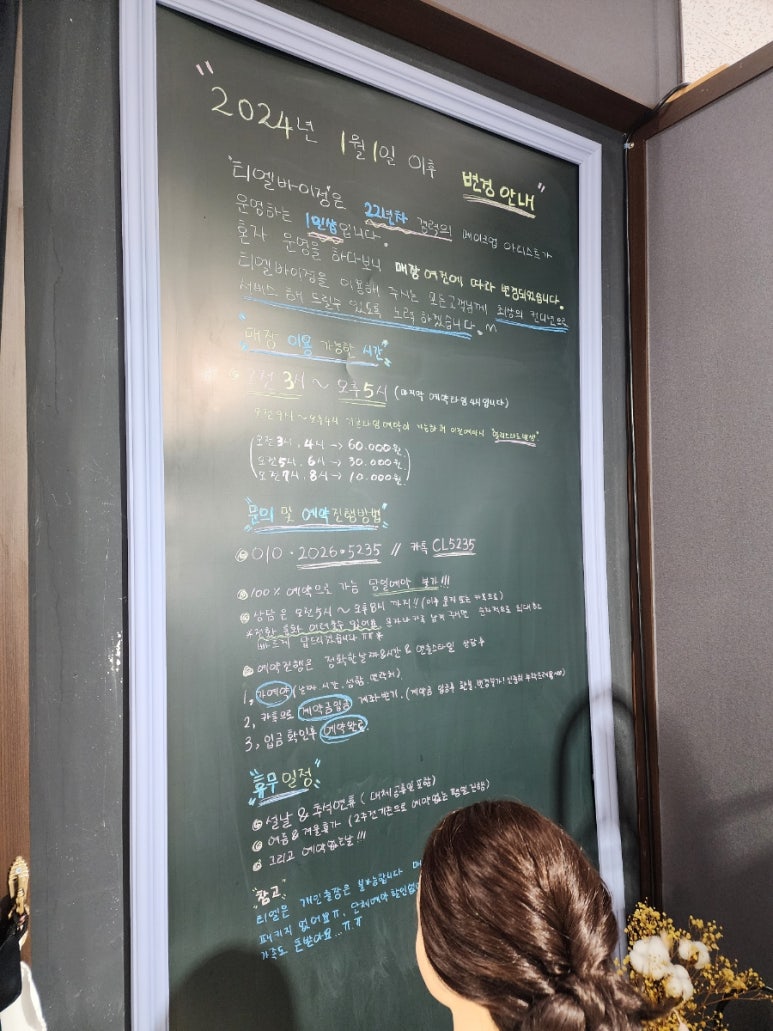 "2024년 1월1일 이후 변경 안내"
"티엘바이정"은 22년차 경력의 메이크업 아티스트가
운영하는 1인샵입니다.
혼자 운영을 하다보니 매장 여건에 따라 변경되었습니다.
티엘바이정을 이용해 주시는 모든고객님께 최상의 컨디션으로
서비스 해 드릴수 있도록 노력 하겠습니다.
"매장 이용 가능한 시간"
오전 3시 ~ 오후 5시 (마지막 예약타임 4시입니다)
오전9시 ~ 오후4시
오전3시, 4시 → 60.000원
오전5시, 6시 → 30.000원
오전7시, 8시 → 10.000원
"문의 및 예약진행방법"
010 · 2026 · 5235 // 카톡 CL5235
100% 예약으로 가능 당일예약 불가!!!
상담은 오전5시 ~ 오후8시 까지!! (이후 문자 또는 카톡으로)
*전화 통화 어려울수 있어요 문자나 카톡 남겨 주시면 순차적으로 최대한
빠르게 답드리겠습니다 ㅠㅠ*
예약진행은 정확한날짜&시간 & 연출스타일 상담후
1, 가예약 (날짜, 시간, 성함, 연락처)
2, 카톡으로 계약금입금 계좌받기.
3, 입금확인후 예약완료.
"휴무 일정"
설날 & 추석연휴 (대체공휴일 포함)
여름 & 겨울휴가 (2주전기준으로 예약없는 평일진행)
그리고 예약없는날!!!
"참고"
티엘은 개인출장은 불가능합니다
패키지 없어요ㅠ, 단체예약 할인
가족도 돈받아요...ㅠ.ㅠ